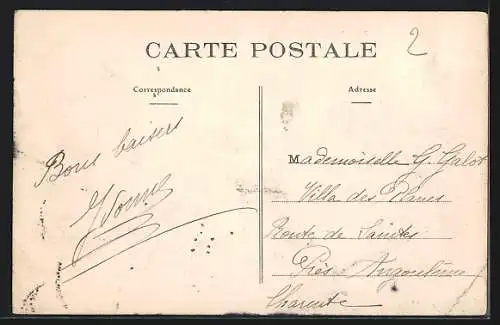 CARTE POSTALE
2
Correspondance
Adresse
Bons baisers
Yvonne
Mademoiselle G. Galot
Villa des
Route de Saintes
Près Angoulême
Charente